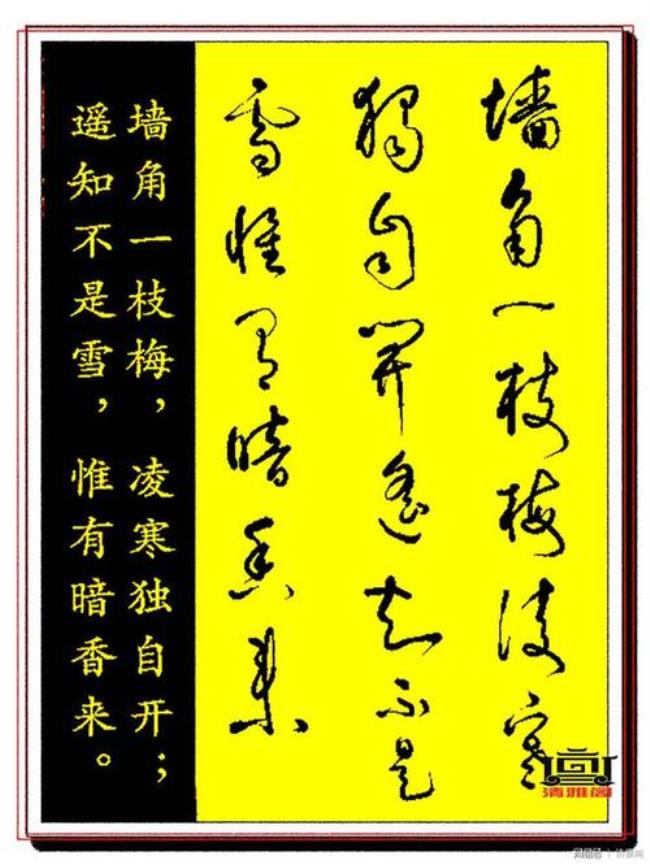 墙角一枝梅凌寒
獨自開遥知不是
雪惟有暗香来
墙角一枝梅，凌寒独自开；
遥知不是雪，惟有暗香来。
清雅阁